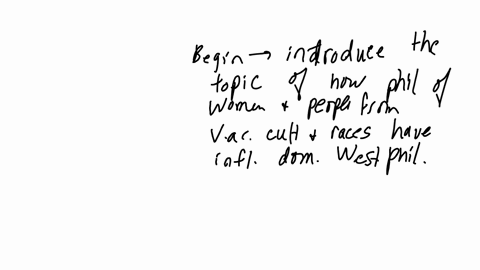 Begin → introduce the
topic of how phil of
women + people from
var. cult + races have
infl. dom. West phil.